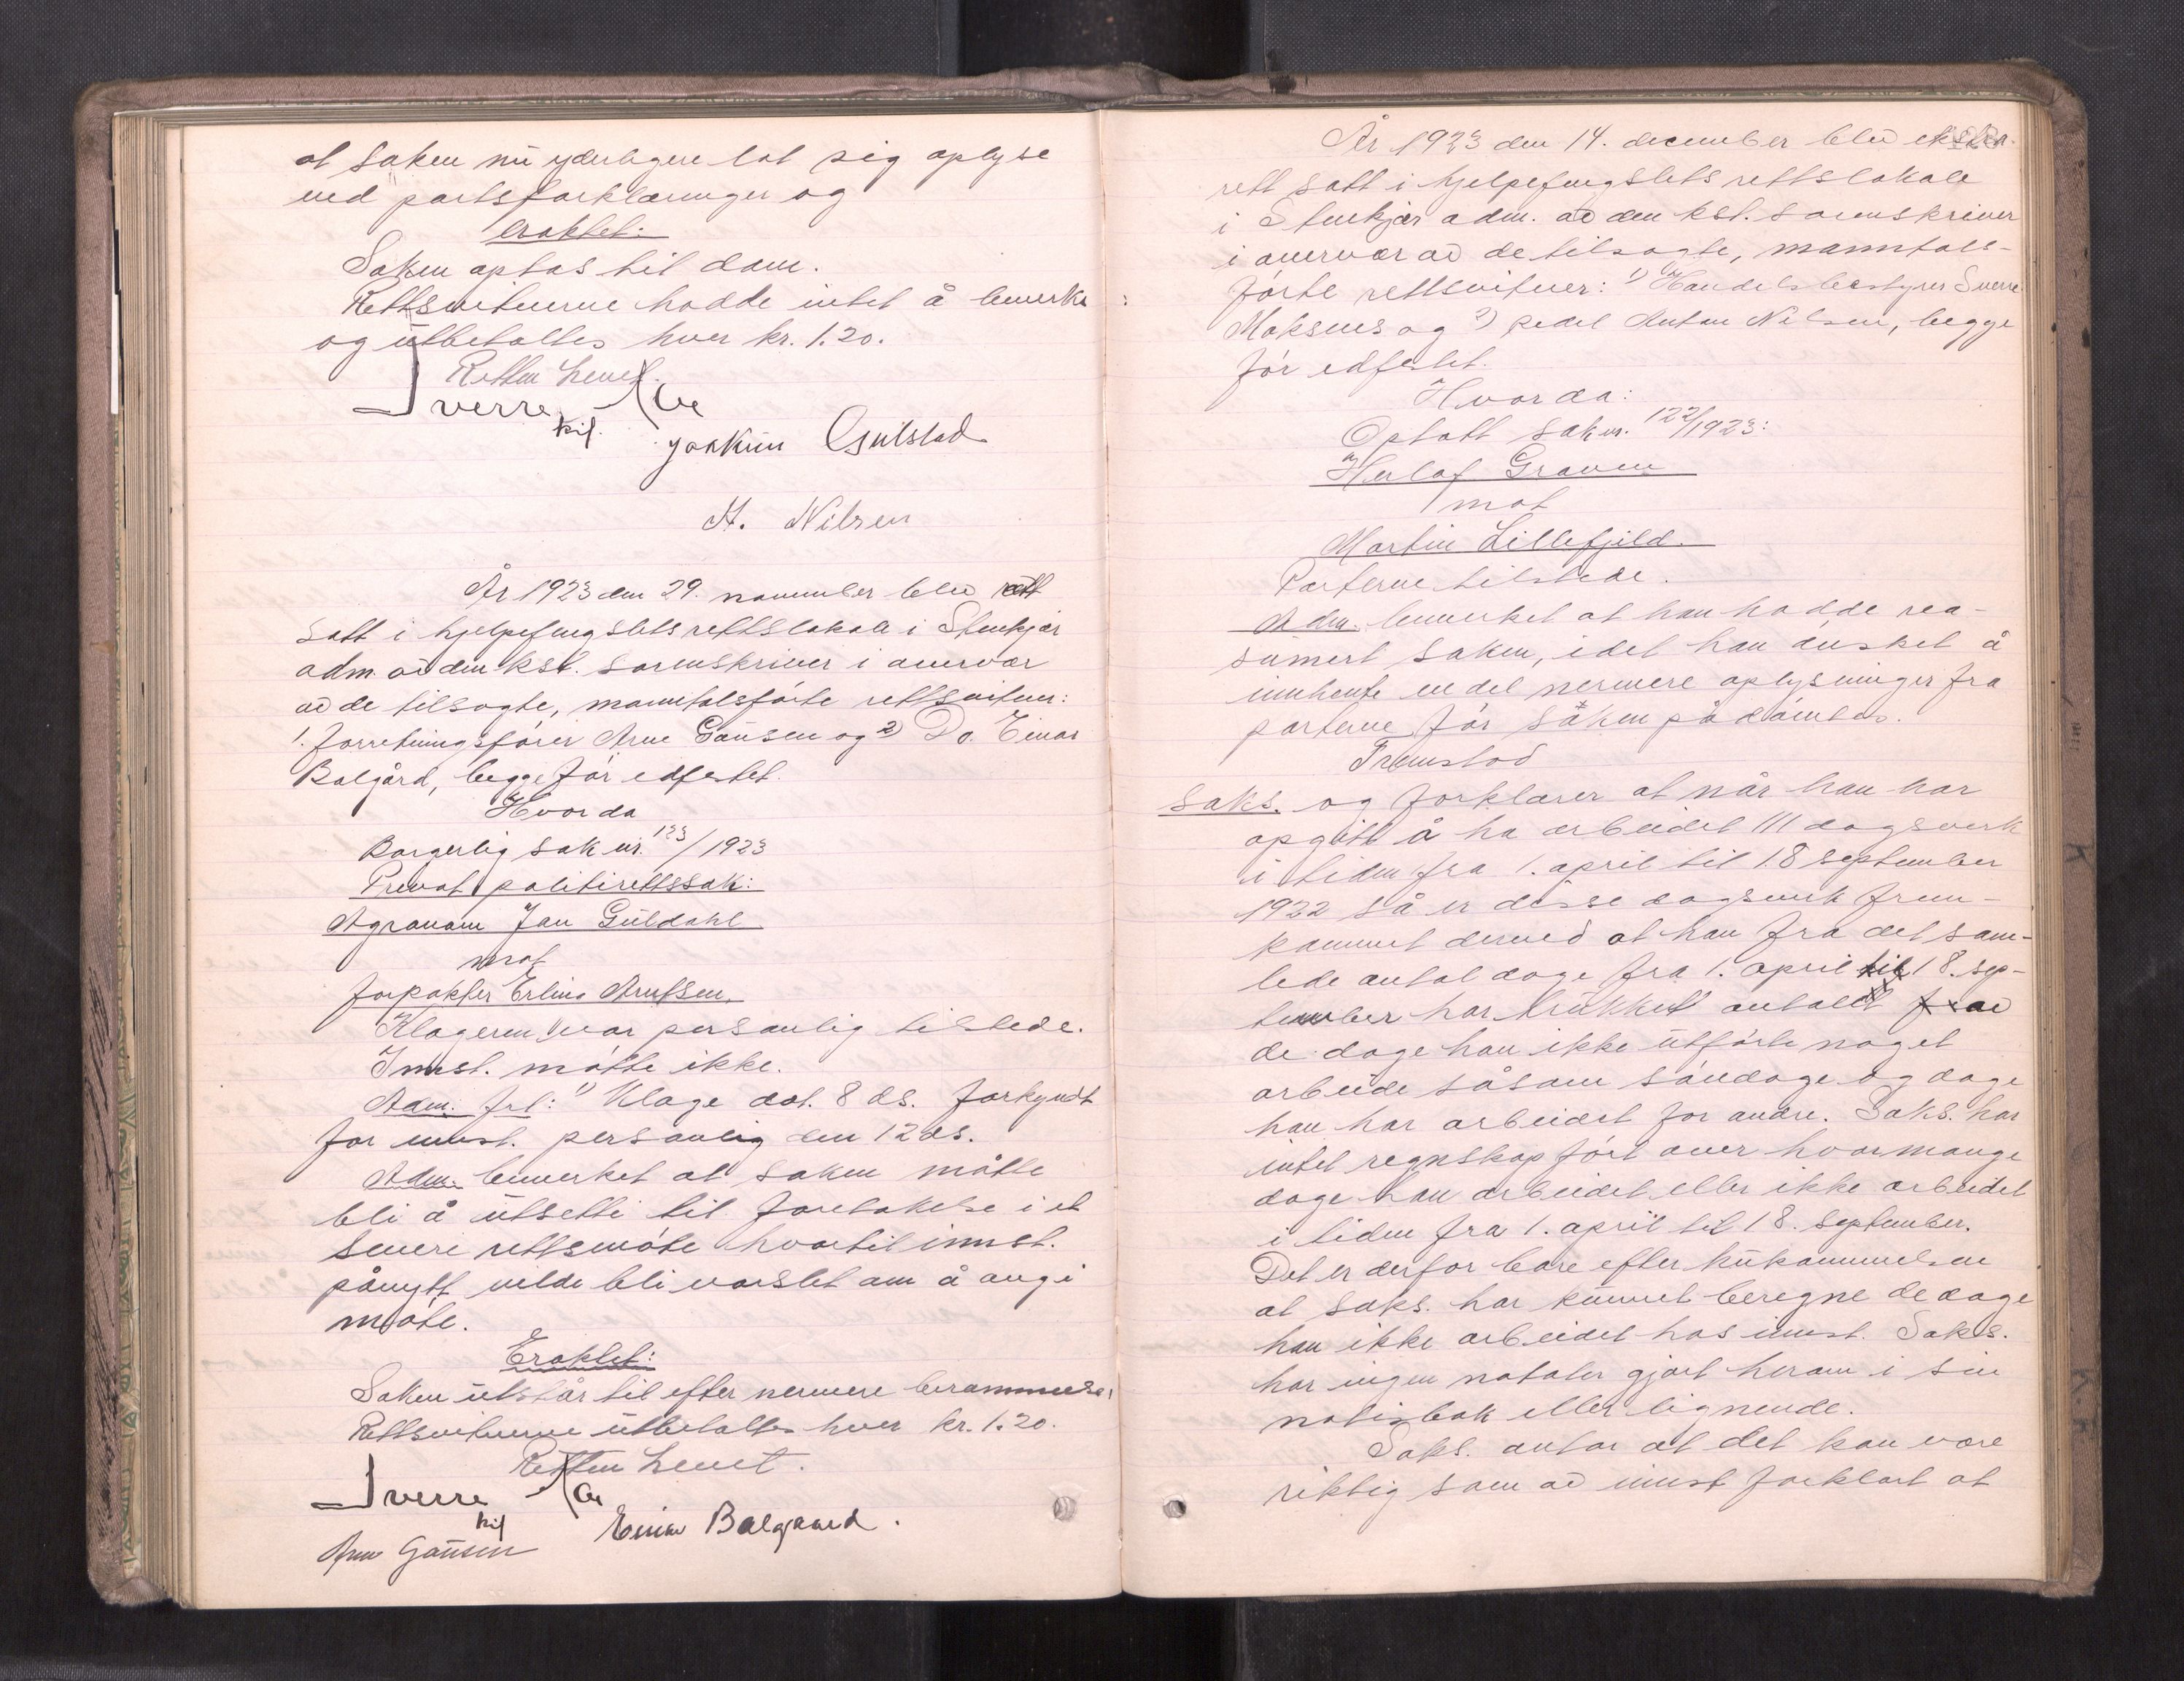 at saken nu yderligere lot sig oplyse
ved partsforklaringer og
eraktet:
Saken optas til dom.
Rettsvitnerne hadde intet å bemerke
og utbetaltes hver kr. 1.20.
Retten hevet.
Sverre
kst.
Joakim Gulstad
A. Nilsen
År 1923 den 29. november blev rett
satt i hjelpefengslets rettslokale i Stenkjær
adm. av den kst. sorenskriver i overvær
av de tilsagte, manntalsførte rettsvitner:
1. forretningsfører Arne Gausen og 2) Do. Einar
Balgård, begge før edfestet.
Hvorda
Borgerlig sak nr. 123/1923
Privat politirettssak:
Agronom Jan Guldahl
mot
forpakter Erling Arntsen.
Klageren var personlig tilstede.
Innst. møtte ikke.
Adm. frl: 1) Klage dat. 8 ds. forkyndt
for innst. personlig den 12 ds.
Adm. bemerket at saken måtte
bli å utsette til foretakelse i et
senere rettsmøte hvortil innst.
pånytt vilde bli varslet om å angi
møte.
Eraktet:
Saken utstår til efter nermere berammelse.
Rettsvitnerne utbetaltes hver kr. 1.20.
Retten hevet.
Sverre
kst
Einar Balgaard.
Arne Gausen
År 1923 den 14. december blev ekstra.
rett satt i hjelpefengslets rettslokale
i Stenkjær adm. av den kst. sorenskriver
i overvær av de tilsagte, manntall-
førte rettsvitner: 1) Handelsbestyrer Sverre
Moksnes og 2) pedel Anton Nilsen, begge
før edfestet.
Hvorda:
Optatt sak nr. 122/1923:
Herlof Graven
mot
Martin Lillefjeld.
Parterne tilstede.
Adm. bemerket at han hadde rea-
sumert saken, idet han ønsket å
innhente en del nermere oplysninger fra
parterne før saken pådømtes.
Fremstod
Saks. og forklarer at når han har
opgitt å ha arbeidet 111 dagsverk
i tiden fra 1. april til 18 september
1922 så er disse dagsverk frem-
kommet derved at han fra det sam-
lede antal dage fra 1. april til 18. sep-
tember har trukket antallet av
de dage han ikke utførte noget
arbeide såsom søndage og dage
han har arbeidet for andre. Saks. har
intet regnskap ført over hvormange
dage han arbeidet eller ikke arbeidet
i tiden fra 1. april til 18. september.
Det er derfor bare efter hukommelsen
at saks. har kunnet beregne de dage
han ikke arbeidet hos innst. Saks.
har ingen notater gjort herom i sin
notisbok eller lignende.
Saks. antar at det kan være
riktig som av innst forklart at